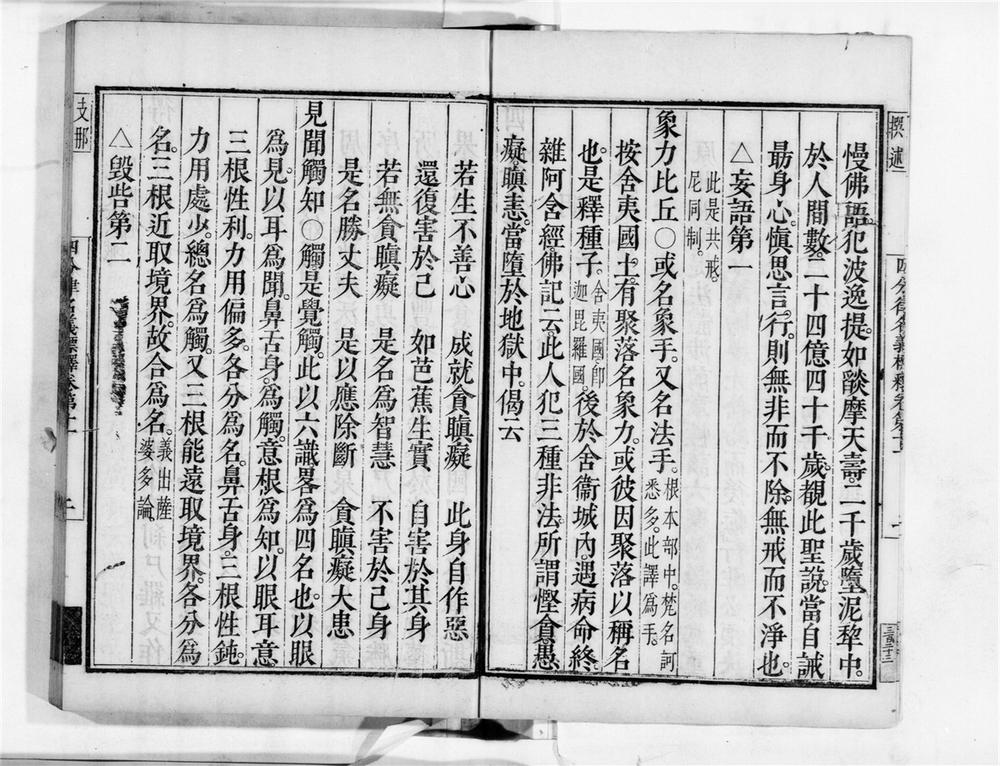 撰述
四分律名義標釋卷第十二
慢佛語犯波逸提。如𦦨摩天壽。二千歲墮泥犂中。
於人間數。二十四億四十千歲。覩此聖說。當自誡
最身心。愼思言行。則無非而不除。無戒而不淨也。
△妄語第一
此是共戒。
尼同制。
象力比丘〇或名象手。又名法手。根本部中。梵名訶
悉多。此譯爲手。
按舍夷國土。有聚落名象力。或彼因聚落以稱名
也。是釋種子。舍夷國。卽
迦毘羅國。後於舍衞城內。遇病命終。
雜阿含經。佛記云。此人犯三種非法。所謂慳貪愚
癡。瞋恚。當墮於地獄中。偈云
若生不善心 成就貪瞋癡 此身自作惡
還復害於己 如芭蕉生實 自害於其身
若無貪瞋癡 是名爲智慧 不害於己身
是名勝丈夫 是以應除斷 貪瞋癡大患
見聞觸知〇觸是覺觸。此以六識畧爲四名也。以眼
爲見。以耳爲聞。鼻舌身。爲觸。意根爲知。以眼耳意
三根性利。力用偏多。各分爲名。鼻舌身。三根性鈍。
力用處少。總名爲觸。又三根能遠取境界。各分爲
名。三根近取境界。故合爲名。義出薩
婆多論。
△毀呰第二
支那
四分律名義標釋卷第十二